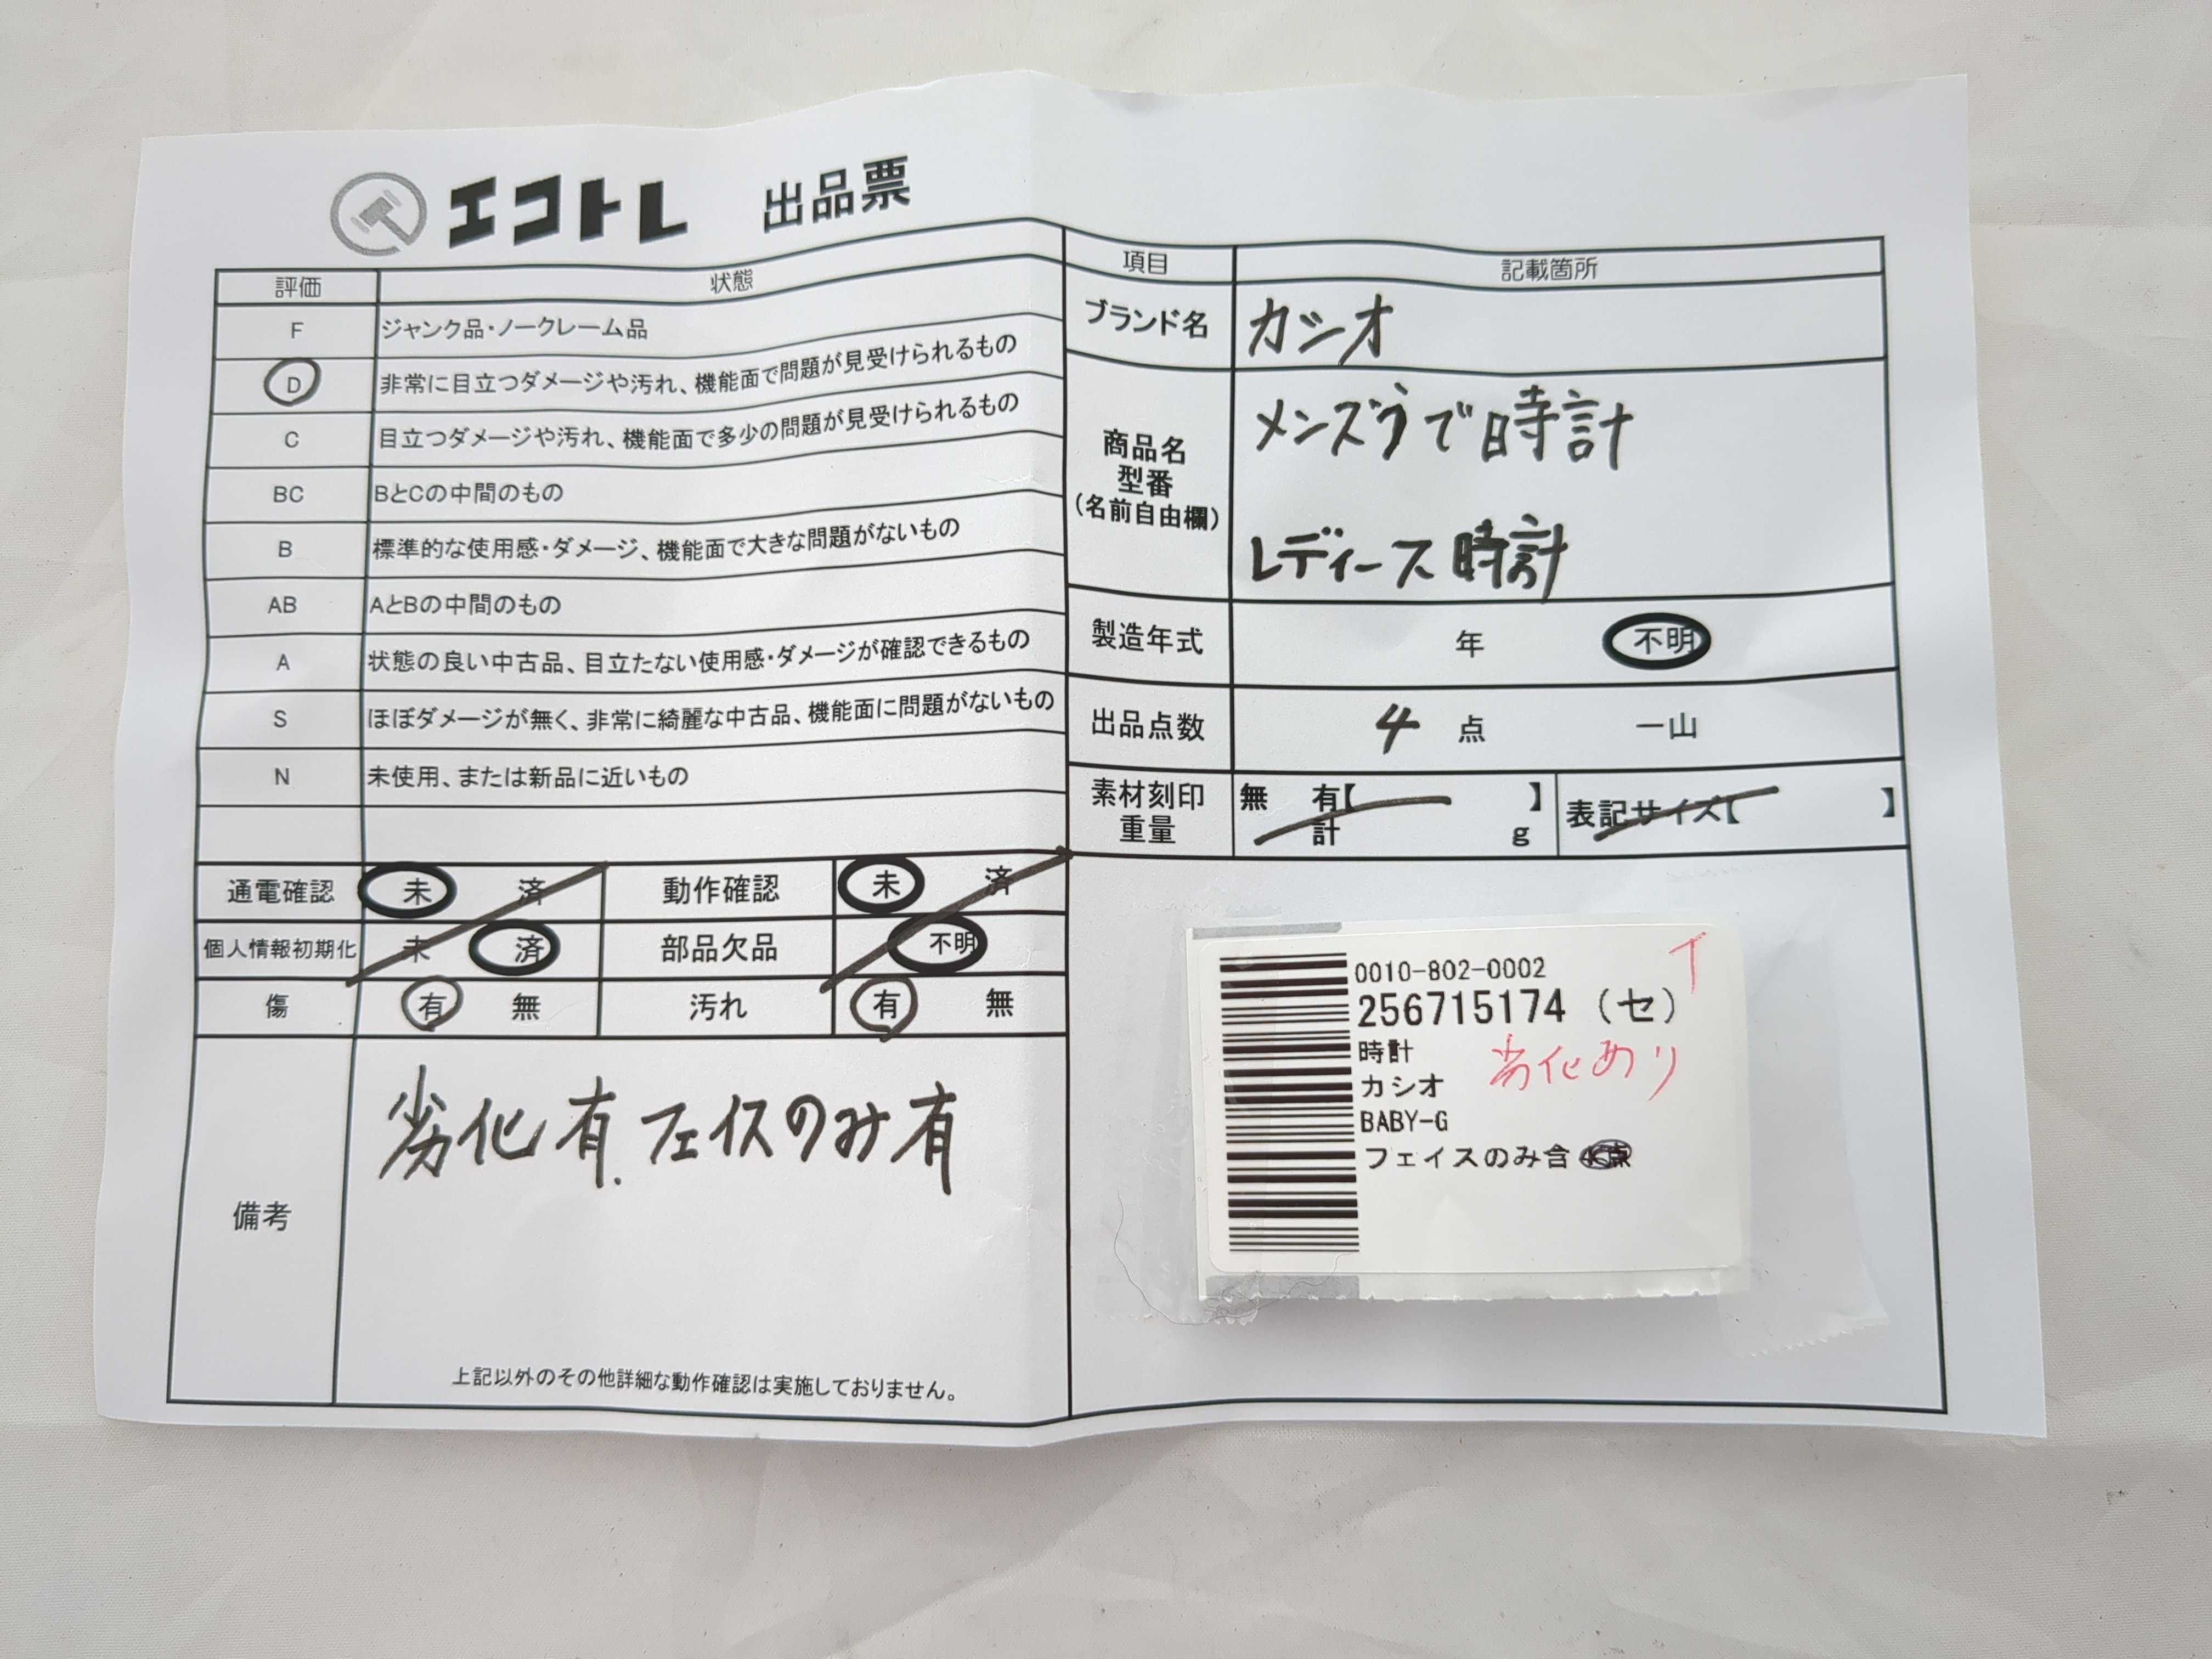 エコトレ 出品票
評価 状態
F ジャンク品・ノークレーム品
D 非常に目立つダメージや汚れ、機能面で問題が見受けられるもの
C 目立つダメージや汚れ、機能面で多少の問題が見受けられるもの
BC BとCの中間のもの
B 標準的な使用感・ダメージ、機能面で大きな問題がないもの
AB AとBの中間のもの
A 状態の良い中古品、目立たない使用感・ダメージが確認できるもの
S ほぼダメージが無く、非常に綺麗な中古品、機能面に問題がないもの
N 未使用、または新品に近いもの
通電確認 未 済 動作確認 未 済
個人情報初期化 未 済 部品欠品 不明
傷 有 無 汚れ 有 無
備考
劣化有.フェイスのみ有
上記以外のその他詳細な動作確認は実施しておりません。
項目 記載箇所
ブランド名 カシオ
商品名
型番
(名前自由欄)
メンズうで時計
レディース時計
製造年式 年 不明
出品点数 4 点 一山
素材刻印
重量
無 有【 】
計 g
表記サイズ【 】
0010-802-0002
256715174 (セ)
時計
カシオ
劣化あり
BABY-G
フェイスのみ含